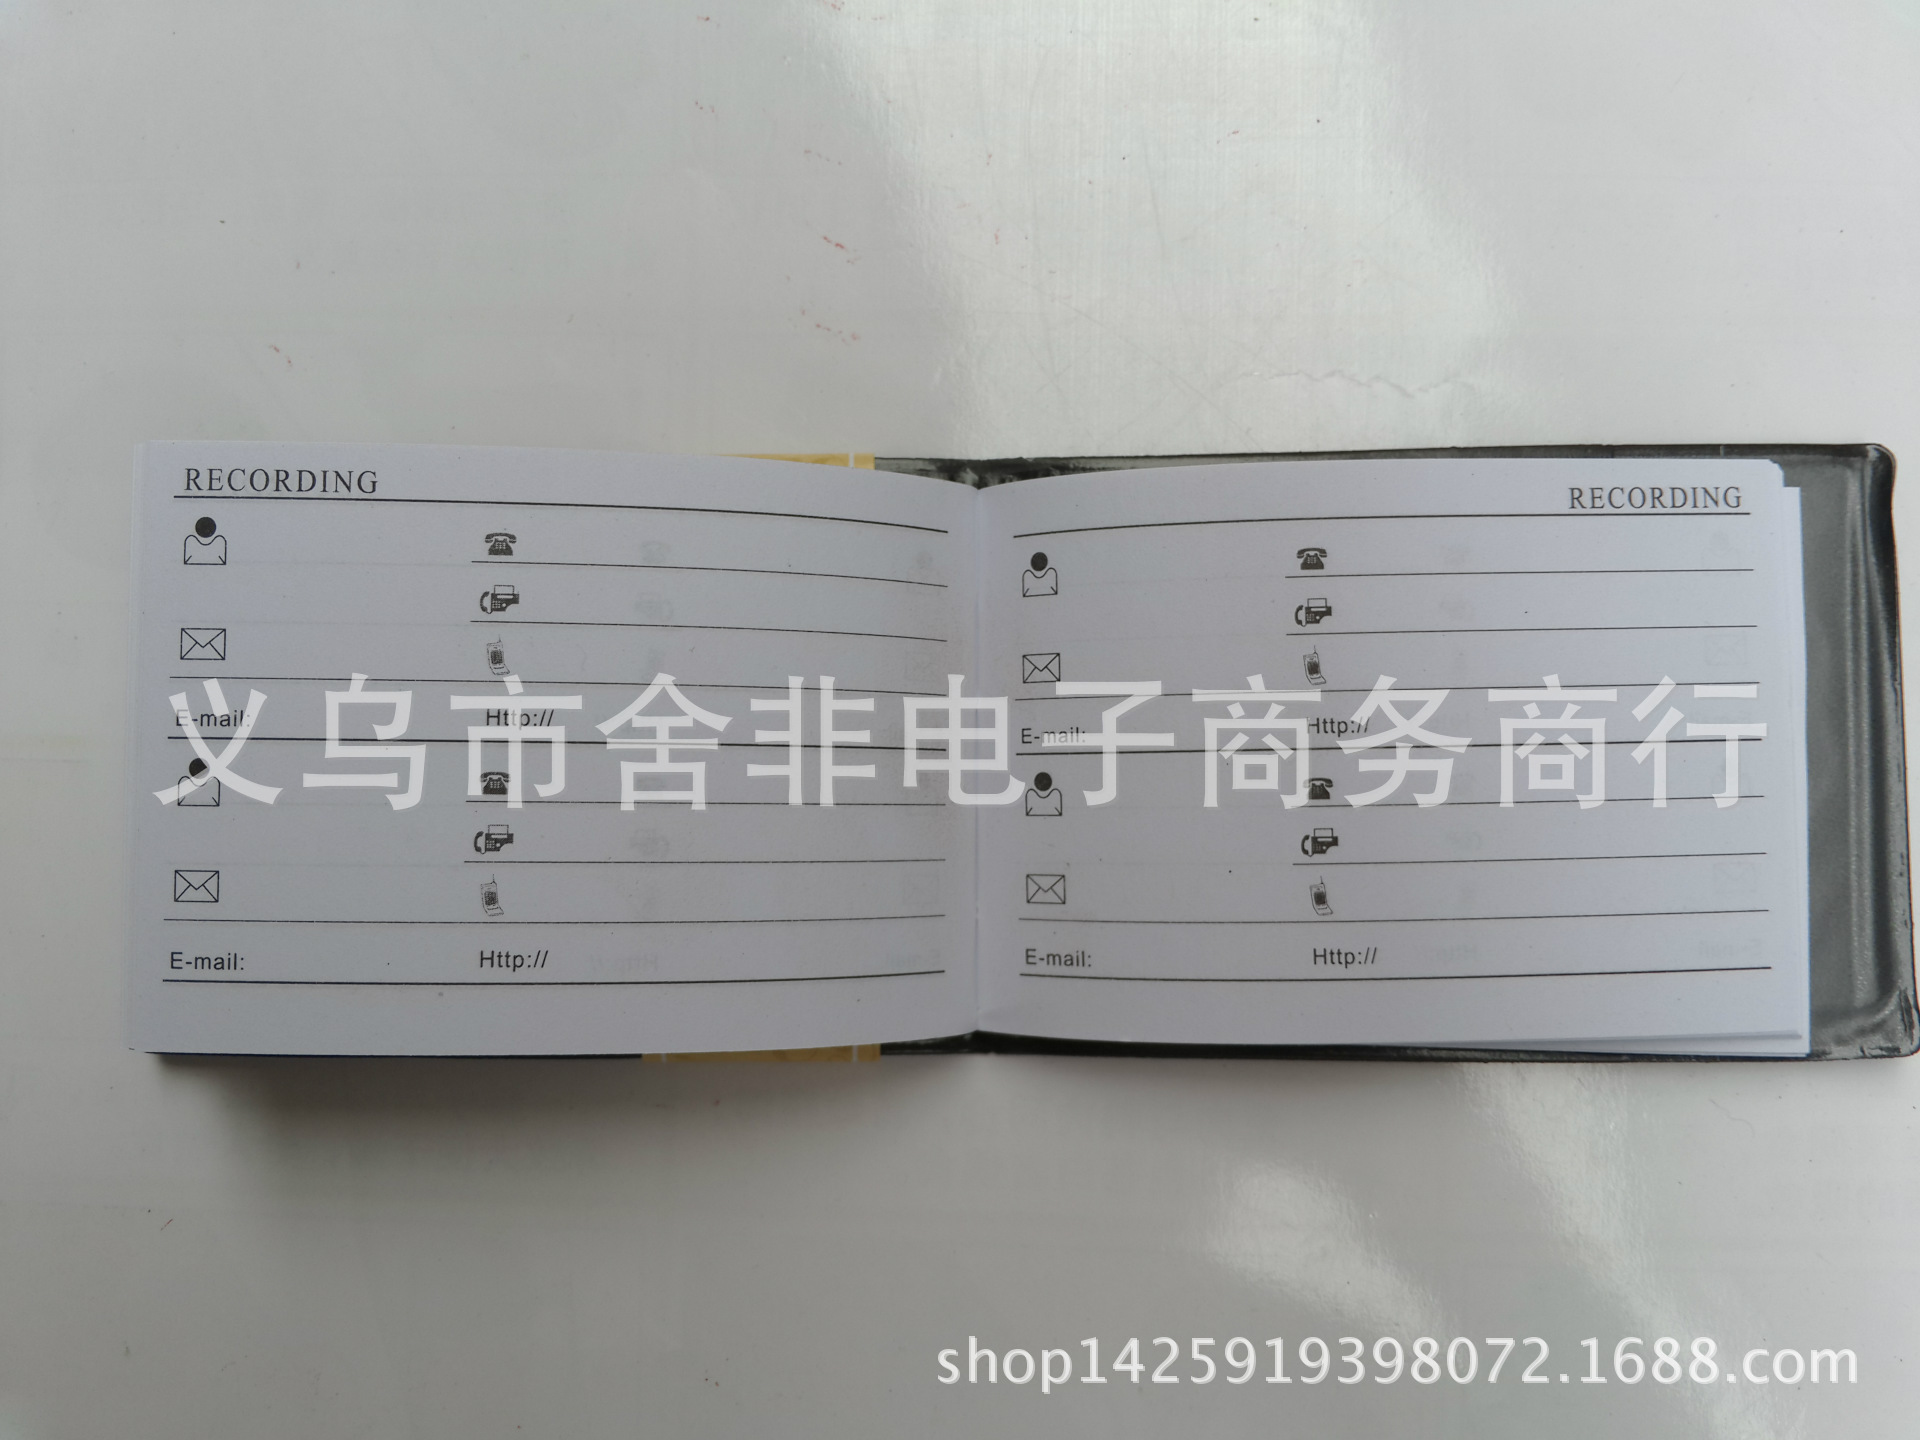 RECORDING
E-mail: Http://
E-mail: Http://
RECORDING
E-mail: Http://
E-mail: Http://
义乌市舍非电子商务商行
shop1425919398072.1688.com